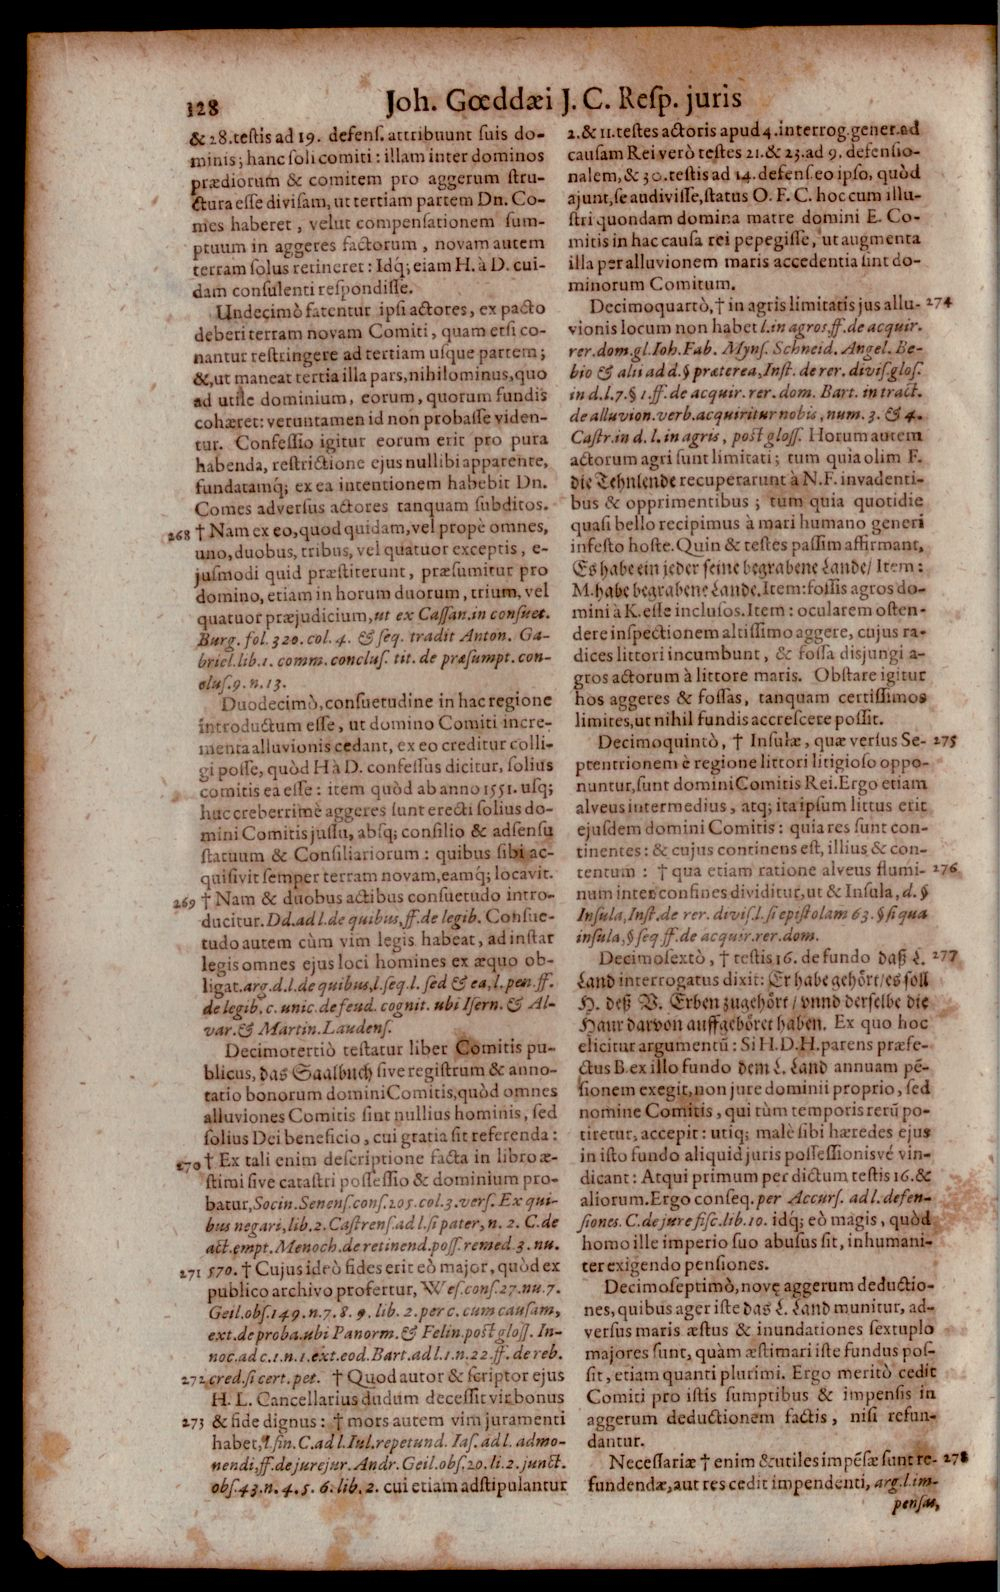 128
Joh. Gœddæi J. C. Resp. juris
& 28. testis ad 19. defens. attribuunt suis do-
minis; hanc soli comiti: illam inter dominos
prædiorum & comitem pro aggerum stru-
ctura esse divisam, ut tertiam partem Dn. Co-
mes haberet, velut compensationem sum-
ptuum in aggeres factorum, novam autem
terram solus retineret: Idq́; eiam H. à D. cui-
dam consulenti respondisse.
Undecimò fatentur ipsi actores, ex pacto
deberi terram novam Comiti, quam etsi co-
nantur restringere ad tertiam usque partem;
&, ut maneat tertia illa pars, nihilominus, quo
ad utile dominium, eorum, quorum fundis
cohæret: veruntamen id non probasse viden-
tur. Confessio igitur eorum erit pro pura
habenda, restrictione ejus nullibi apparente,
fundatamq́; ex ea intentionem habebit Dn.
Comes adversus actores tanquam subditos.
268 † Nam ex eo, quod quidam, vel propè omnes,
uno, duobus, tribus, vel quatuor exceptis, e-
jusmodi quid præstiterunt, præsumitur pro
domino, etiam in horum duorum, trium, vel
quatuor præjudicium, ut ex Cassan. in consuet.
Burg. fol. 320. col. 4. & seq. tradit Anton. Ga-
briel. lib. 1. comm. conclus. tit. de præsumpt. con-
clus. 9. n. 13.
Duodecimò, consuetudine in hac regione
introductum esse, ut domino Comiti incre-
menta alluvionis cedant, ex eo creditur colli-
gi posse, quòd H à D. confessus dicitur, solius
comitis ea esse: item quòd ab anno 1551. usq;
huc creberrimè aggeres sunt erecti solius do-
mini Comitis jussu, absq; consilio & adsensu
statuum & Consiliariorum: quibus sibi ac-
quisivit semper terram novam, eamq́; locavit.
269 † Nam & duobus actibus consuetudo intro-
ducitur. Dd. ad l. de quibus, ff. de legib. Consue-
tudo autem cùm vim legis habeat, ad instar
legis omnes ejus loci homines ex æquo ob-
ligat. arg. d. l. de quibus, l. seq. l. sed & ea, l. pen. ff.
de legib. c. unic. de feud. cognit. ubi Isern. & Al-
var. & Martin. Laudens.
Decimotertiò testatur liber Comitis pu-
blicus, das Saalbuch sive registrum & anno-
tatio bonorum domini Comitis, quòd omnes
alluviones Comitis sint nullius hominis, sed
solius Dei beneficio, cui gratia sit referenda:
270 † Ex tali enim descriptione facta in libro æ-
stimi sive catastri possessio & dominium pro-
batur, Socin. Senens. cons. 205. col. 3. vers. Ex qui-
bus negari, lib. 2. Castrens. ad l. si pater, n. 2. C. de
act. empt. Menoch. de retinend. poss. remed. 3. nu.
271 570. † Cujus ideò fides erit eò major, quòd ex
publico archivo profertur, Wes. cons. 27. nu. 7.
Geil. obs. 149. n. 7. 8. 9. lib. 2. per c. cum causam,
ext. de proba. ubi Panorm. & Felin. post gloss. In-
noc. ad c. 1. n. 1. ext. eod. Bart. ad l. 1. n. 22. ff. de reb.
272 cred. si cert. pet. † Quod autor & scriptor ejus
H. L. Cancellarius dudum decessit vir bonus
273 & fide dignus: † mors autem vim juramenti
habet, l. fin. C. ad l. Iul. repetund. Ias. ad l. admo-
nendi, ff. de jurejur. Andr. Geil. obs. 20. li. 2. junct.
obs. 43. n. 4. 5. 6. lib. 2. cui etiam adstipulantur
2. & 11. testes actoris apud 4. interrog. gener. ad
causam Rei verò testes 21. & 23. ad 9. defensio-
nalem, & 30. testis ad 14. defens. eo ipso, quòd
ajunt, se audivisse, status O. F. C. hoc cum illu-
stri quondam domina matre domini E. Co-
mitis in hac causa rei pepegisse, ut augmenta
illa per alluvionem maris accedentia sint do-
minorum Comitum.
Decimoquartò, † in agris limitatis jus allu- 274
vionis locum non habet l. in agros, ff. de acquir.
rer. dom. gl. Ioh. Fab. Myns. Schneid. Angel. Be-
bio & alii ad d. § præterea, Inst. de rer. divis. glos.
in d. l. 7. § 1. ff. de acquir. rer. dom. Bart. in tract.
de alluvion. verb. acquiritur nobis, num. 3. & 4.
Castr. in d. l. in agris, post gloss. Horum autem
actorum agri sunt limitati; tum quia olim F.
die Tehnlende recuperarunt à N. F. invadenti-
bus & opprimentibus; tum quia quotidie
quasi bello recipimus à mari humano generi
infesto hoste. Quin & testes passim affirmant,
Es habe ein jeder seine begrabene Lande/ Item:
M. habe begrabene Lande. Item: fossis agros do-
mini à K. esse inclusos. Item: ocularem osten-
dere inspectionem altissimo aggere, cujus ra-
dices littori incumbunt, & fossa disjungi a-
gros actorum à littore maris. Obstare igitur
hos aggeres & fossas, tanquam certissimos
limites, ut nihil fundis accrescere possit.
Decimoquintò, † Insulæ, quæ versus Se- 275
ptentrionem è regione littori litigioso oppo-
nuntur, sunt domini Comitis Rei. Ergo etiam
alveus intermedius, atq; ita ipsum littus erit
ejusdem domini Comitis: quia res sunt con-
tinentes: & cujus continens est, illius & con-
tentum: † qua etiam ratione alveus flumi- 276
num inter confines dividitur, ut & Insula, d. §
Insula, Inst. de rer. divis. l. si epistolam 63. § si qua
insula, § seq. ff. de acquir. rer. dom.
Decimosextò, † testis 16. de fundo daß L. 277
Land interrogatus dixit: Er habe gehört/ es soll
H. deß V. Erben zugehört/ vnnd derselbe die
Haur darvon auffgeböret haben. Ex quo hoc
elicitur argumentū: Si H. D. H. parens præfe-
ctus B. ex illo fundo dem L. Land annuam pē-
sionem exegit, non jure dominii proprio, sed
nomine Comitis, qui tùm temporis rerū po-
tiretur, accepit: utiq; malè sibi hæredes ejus
in isto fundo aliquid juris possessionisvé vin-
dicant: Atqui primum per dictum testis 16. &
aliorum. Ergo conseq. per Accurs. ad l. defen-
siones. C. de jure fisc. lib. 10. idq́; eò magis, quòd
homo ille imperio suo abusus sit, inhumani-
ter exigendo pensiones.
Decimoseptimò, novę aggerum deductio-
nes, quibus ager iste das L. Land munitur, ad-
versus maris æstus & inundationes sextuplo
majores sunt, quàm æstimari iste fundus pos-
sit, etiam quanti plurimi. Ergo meritò cedit
Comiti pro istis sumptibus & impensis in
aggerum deductionem factis, nisi refun-
dantur.
Necessariæ † enim & utiles impēsæ sunt re- 278
fundendæ, aut res cedit impendenti, arg. l. im-
pensas,